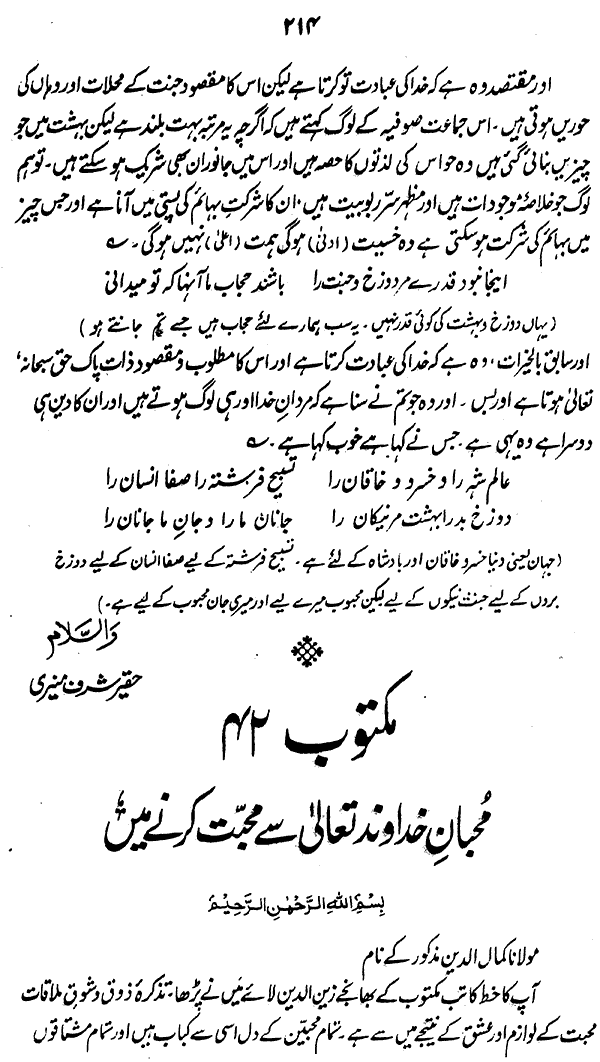 ۲۱۴
اور مقتصد وہ ہے کہ خدا کی عبادت تو کرتا ہے لیکن اس کا مقصود جنت کے محلات اور وہاں کی
حوریں ہوتی ہیں۔ اس جماعت صوفیہ کے لوگ کہتے ہیں کہ اگرچہ یہ مرتبہ بہت بلند ہے لیکن بہشت میں جو
چیزیں بنائی گئی ہیں وہ حواس کی لذتوں کا حصہ ہیں اور اس میں جانور ان بھی شریک ہو سکتے ہیں۔ تو ہم
لوگ جو خلاصۂ موجودات ہیں اور مظہر سرِّ ربوبیت ہیں، ان کا شرکتِ بہائم کی پستی میں آنا ہے اور جس چیز
میں بہائم کی شرکت ہو سکتی ہے وہ خسیت (ادنیٰ) ہوگی ہمت (اعلیٰ) نہیں ہوگی۔ ؎
اینجا نبود قدرے مر دوزخ و جنت را باشند حجاب ما آنہا کہ تو میدانی
(یہاں دوزخ و بہشت کی کوئی قدر نہیں۔ یہ سب ہمارے لئے حجاب ہیں جسے تم جانتے ہو)
اور سابق بالخیرات، وہ ہے کہ خدا کی عبادت کرتا ہے اور اس کا مطلوب و مقصود ذات پاک حق سبحانہ،
تعالیٰ ہوتا ہے اور بس۔ اور وہ جو تم نے سنا ہے کہ مردانِ خدا اور ہی لوگ ہوتے ہیں اور ان کا دین ہی
دوسرا ہے وہ یہی ہے۔ جس نے کہا ہے خوب کہا ہے۔ ؎
عالم شہ را و خسرو و خاقان را تسبیح فرشتہ را صفا انسان را
دوزخ بد را بہشت مر نیکان را جانان ما را و جانِ ما جانان را
(جہان یعنی دنیا خسرو خاقان اور بادشاہ کے لئے ہے۔ تسبیح فرشتہ کے لیے صفا انسان کے لیے دوزخ
بردں کے لیے جنت نیکوں کے لیے لیکن محبوب میرے لیے اور میری جان محبوب کے لیے ہے۔)
والسّلام
حقیر شرف منیری
مکتوب ۴۲
مُحبانِ خداوند تعالیٰ سے محبّت کرنے میں
بِسْمِ اللهِ الرَّحْمٰنِ الرَّحِيْمِ
مولانا کمال الدین مذکور کے نام
آپ کا خط کاتب مکتوب کے بھانجے زین الدین لائے میں نے پڑھا۔ تذکرۂ ذوق و شوقِ ملاقات
محبت کے لوازم اور عشق کے نتیجے میں سے ہے۔ تمام محبّین کے دل اسی سے کباب ہیں اور تمام مشتاقوں